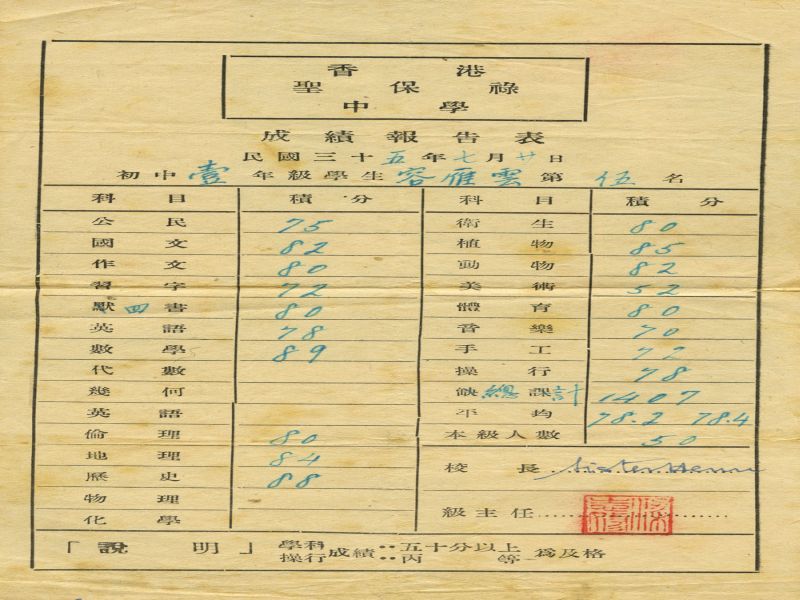 香港
聖保祿
中學
成績報告表
民國三十五年七月廿日
初中壹年級學生容雁雲第伍名
科目 積分 科目 積分
公民 75 衛生 80
國文 82 植物 85
作文 80 動物 82
習字 72 美術 52
默書 80 體育 80
英語 78 音樂 70
數學 89 手工 72
代數 操行 78
幾何 缺課 總計 1407
英語 平均 78.2 78.4
倫理 80 本級人數 50
地理 84
歷史 88 校長 Sister
物理
化學 級主任
「說明」 學科成績：五十分以上為及格
操行成績：丙等為及格